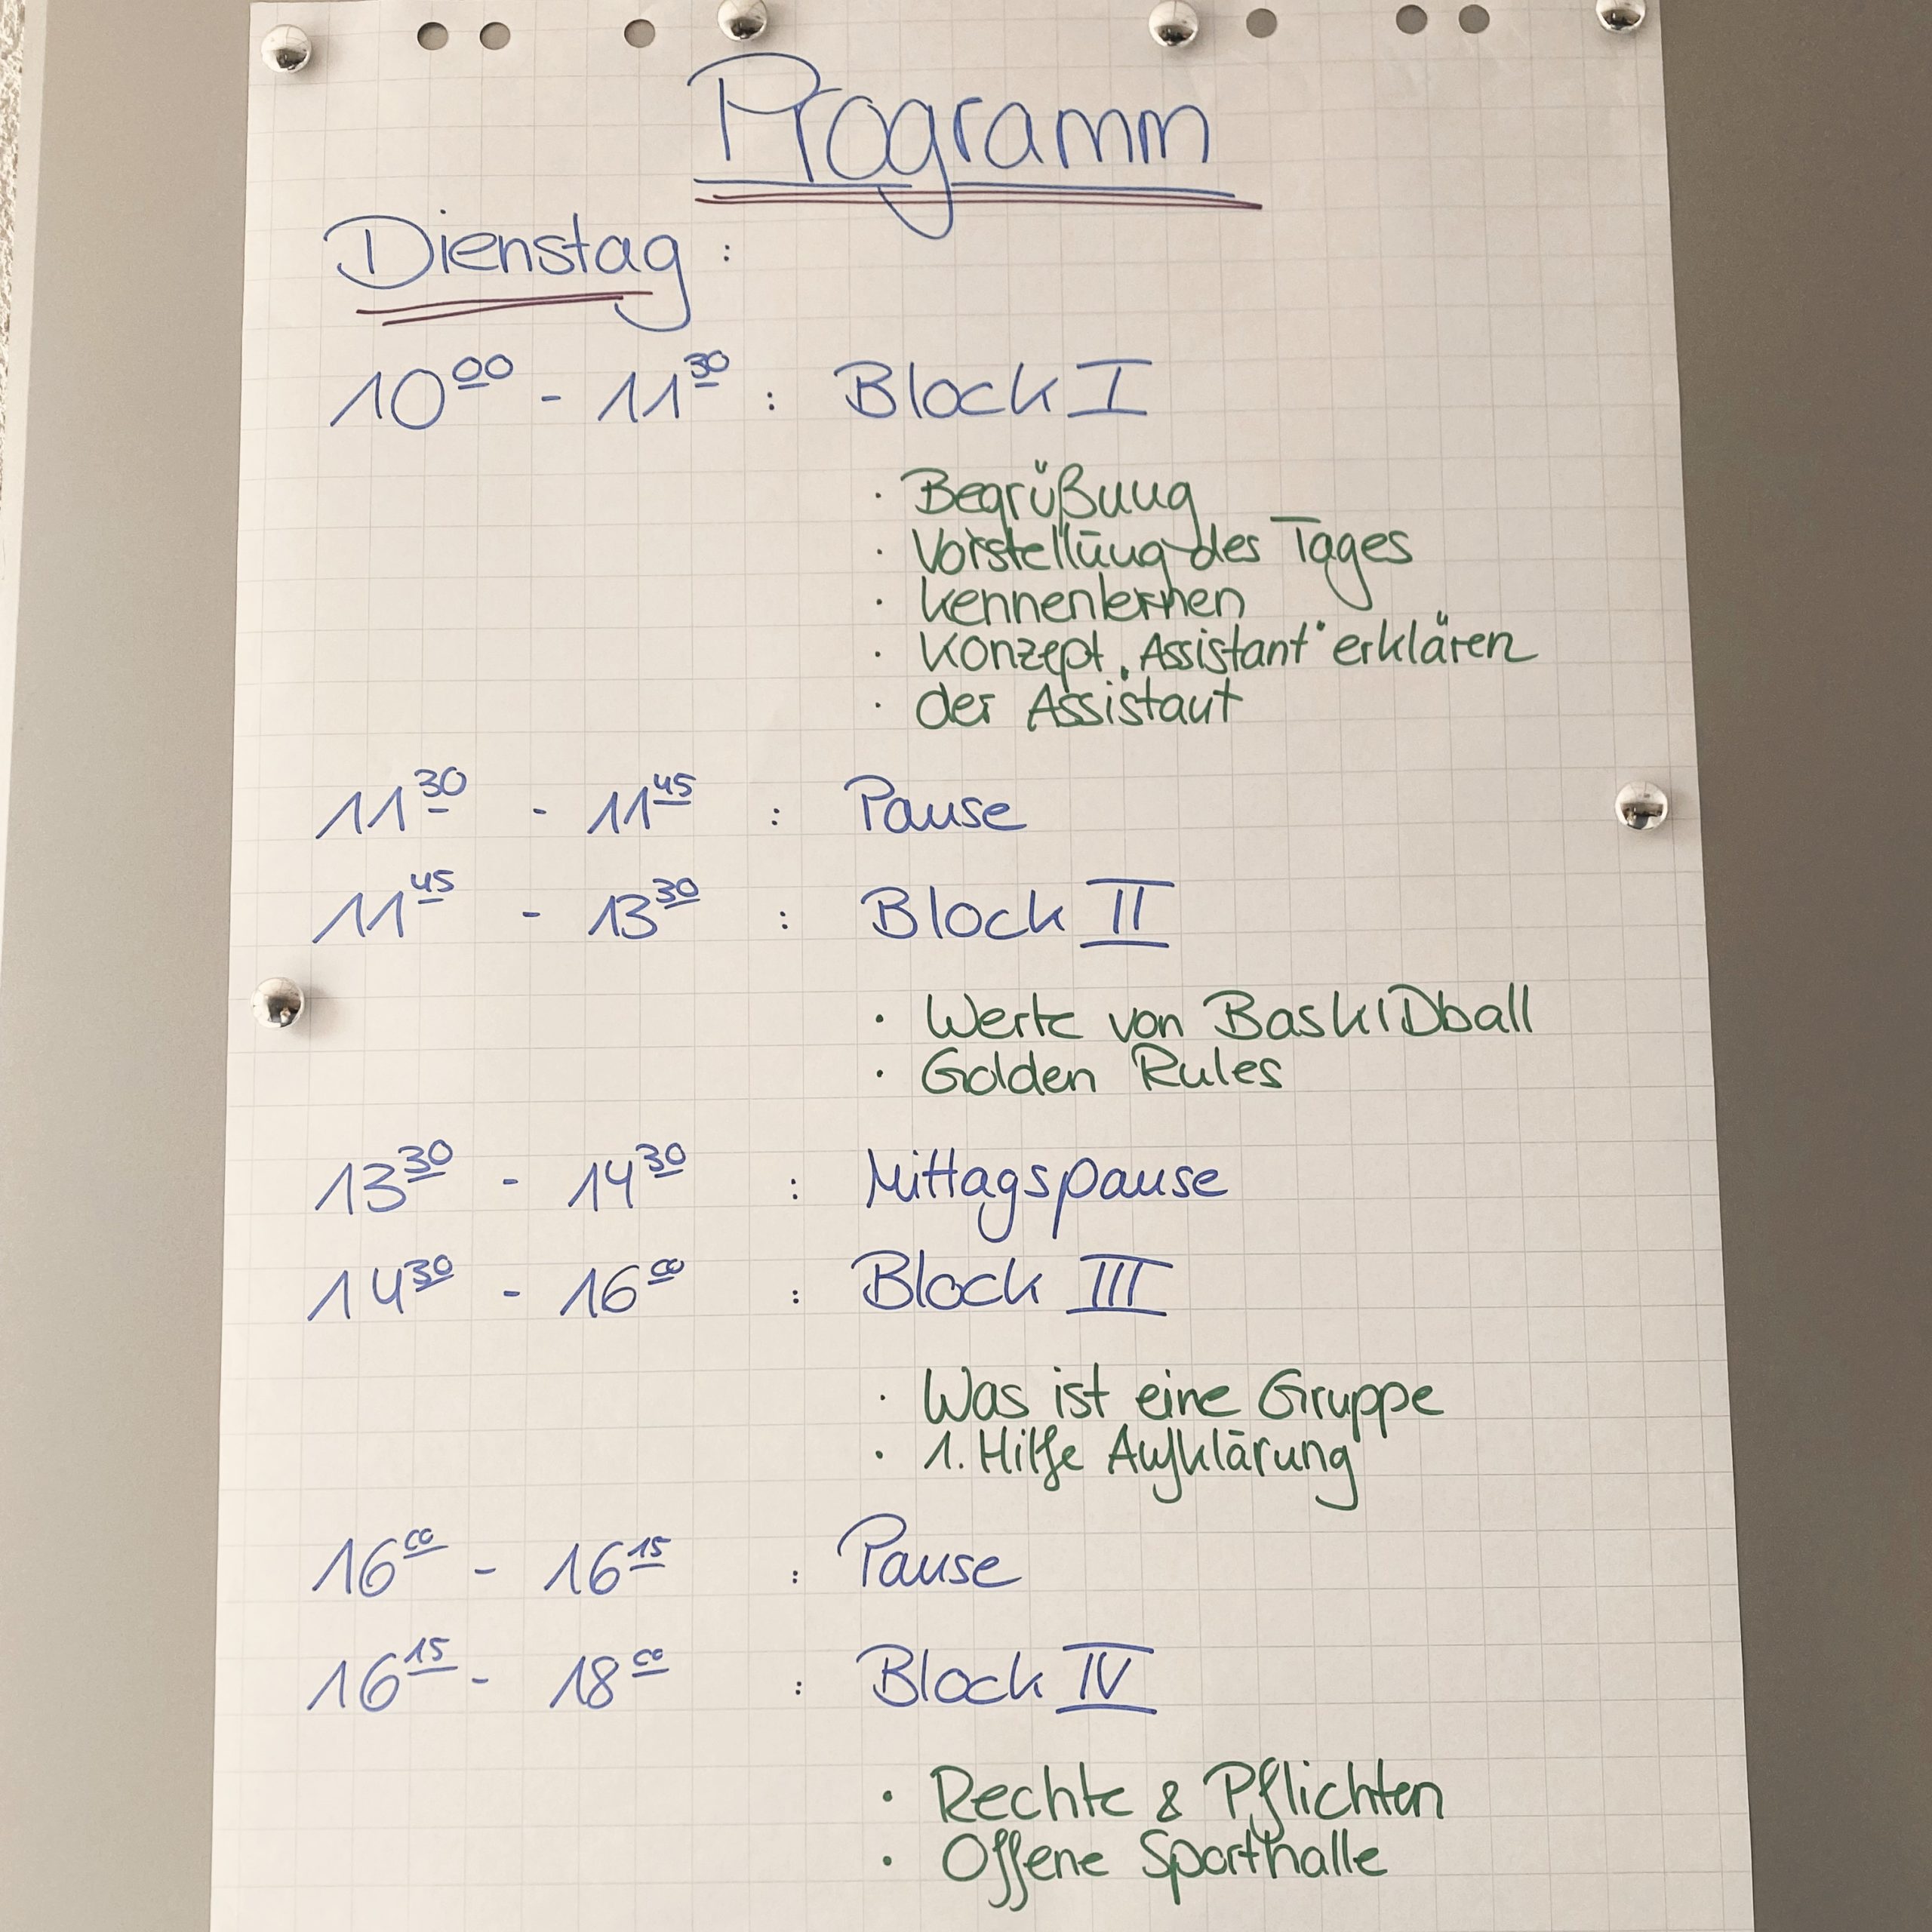 Programm
Dienstag:
10⁰⁰ - 11³⁰ : Block I
· Begrüßung
· Vorstellung des Tages
· Kennenlernen
· Konzept „Assistant“ erklären
· der Assistant
11³⁰ - 11⁴⁵ : Pause
11⁴⁵ - 13³⁰ : Block II
· Werte von BaskIDball
· Golden Rules
13³⁰ - 14³⁰ : Mittagspause
14³⁰ - 16⁰⁰ : Block III
· Was ist eine Gruppe
· 1. Hilfe Aufklärung
16⁰⁰ - 16¹⁵ : Pause
16¹⁵ - 18⁰⁰ : Block IV
· Rechte & Pflichten
· Offene Sporthalle